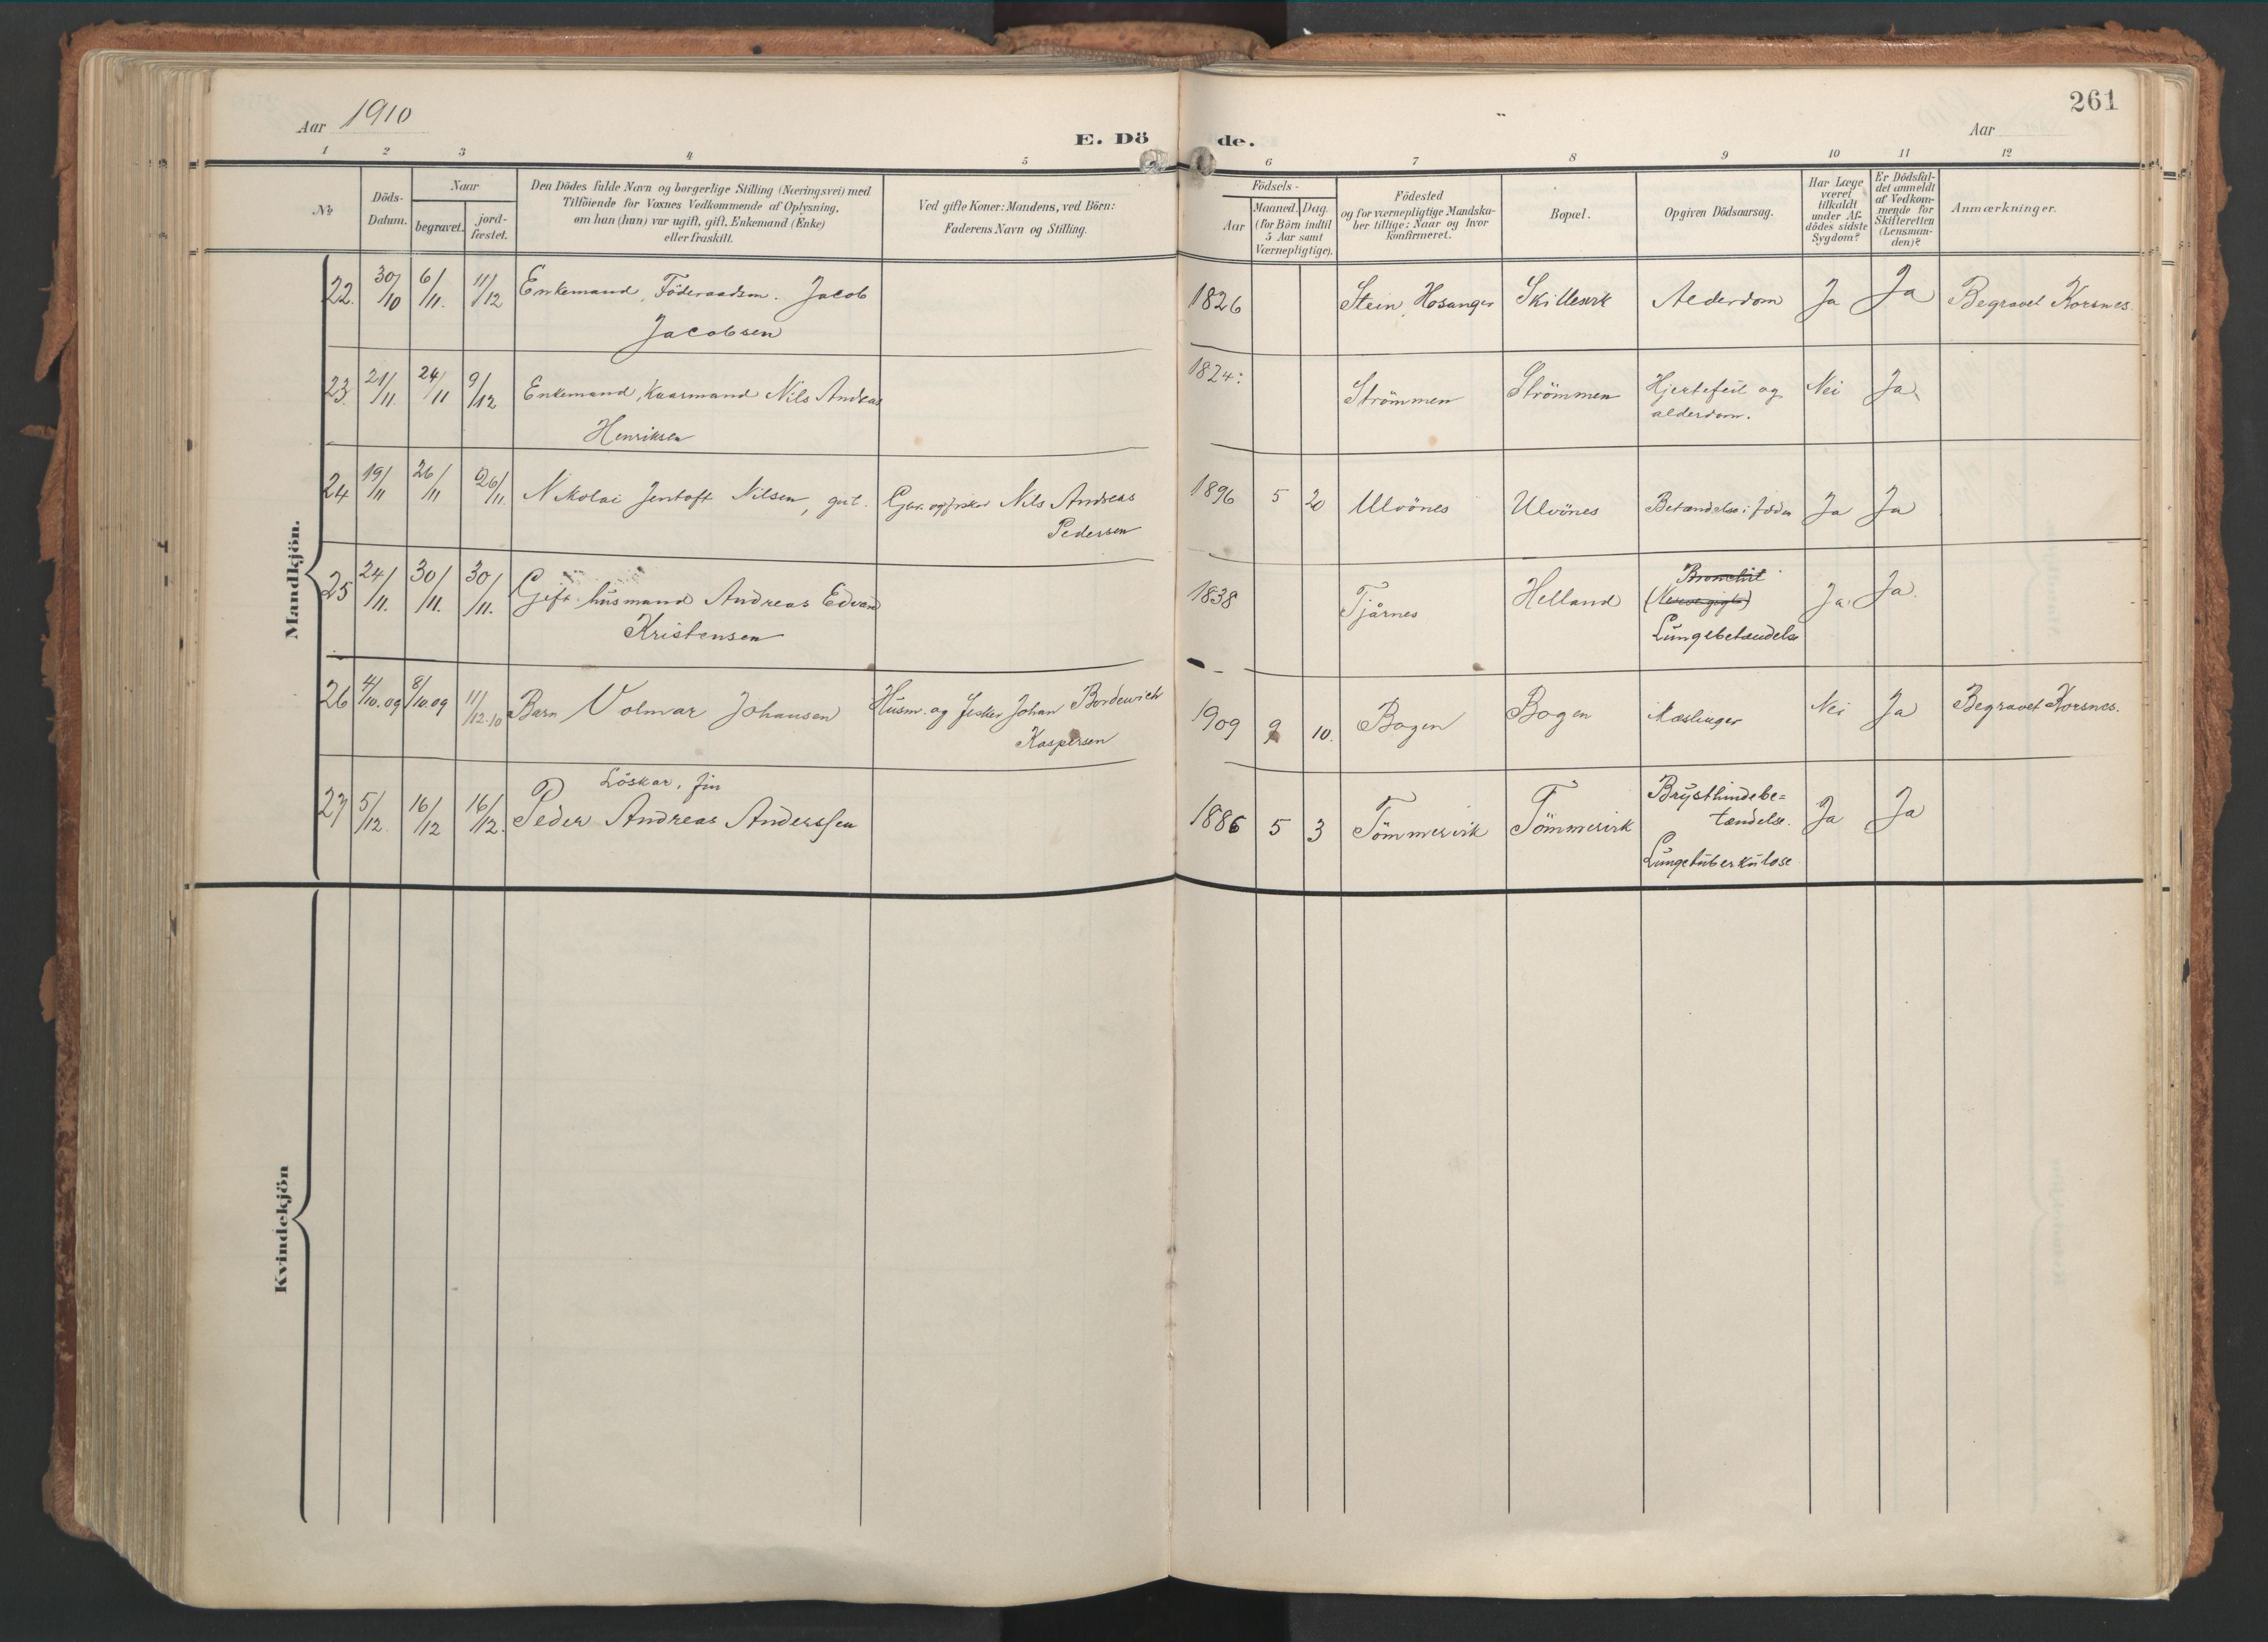 Aar 1910
E. Döde.
Aar
261
1 2 3 4 5 6 7 8 9 10 11 12
№
Döds-Datum.
Naar
begravet.
jord-fæstet.
Den Dödes fulde Navn og borgerlige Stilling (Næringsvei) med
Tilföiende for Voxnes Vedkommende af Oplysning,
om han (hun) var ugift, gift, Enkemand (Enke)
eller fraskilt.
Ved gifte Koner: Mandens, ved Börn:
Faderens Navn og Stilling.
Födsels-
Aar
Maaned. Dag.
(for Börn indtil
5 Aar samt
Værnepligtige).
Födested
og for værnepligtige Mandska-
ber tillige: Naar og hvor
konfirmeret.
Bopæl.
Opgiven Dödsaarsag.
Har Læge
været
tilkaldt
under Af-
dödes sidste
Sygdom?
Er Dödsfal-
det anmeldt
af Vedkom-
mende for
Skifteretten
(Lensman-
den)?
Anmærkninger.
Mandkjön.
22. 30/10 6/11. 11/12 Enkemand, Föderaadsm. Jacob
Jacobsen
1826 Stein, Hosanger Skillevik Alderdom Ja Ja Begravet Korsnes.
23. 21/11. 24/11 9/12 Enkemand, Kaarmand Nils Andreas
Henriksen
1824: Strömmen Strömmen Hjertefeil og
alderdom. Nei Ja
24 19/11 26/11 26/11. Nikolai Jentoft Nilsen, gut. Gbr. og fisker Nils Andreas
Pedersen
1896 5 20 Ulvönes Ulvönes Betændelse i foden Ja Ja
25 24/11. 30/11. 30/11. Gift husmand Andreas Edvard
Kristensen
1838 Tjårnes Helland Bronchit
(Nervegigt)
Lungebetændelse Ja Ja.
26 4/10.09 8/10.09 11/12.10 Barn Volmar Johansen Husm. og fisker Johan Bordewich
Kaspersen
1909 9 10. Bogen Bogen Mæslinger Nei Ja Begravet Korsnes.
27 5/12. 16/12 16/12. Löskar, fin
Peder Andreas Anderssen
1886 5 3 Tömmervik Tömmervik Brysthindebe=
tændelse.
Lungetuberkulose Ja Ja
Kvindekjön